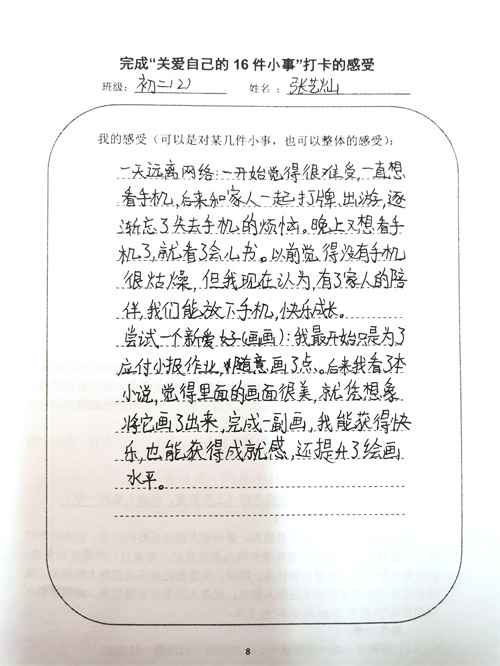 完成“关爱自己的 16 件小事”打卡的感受
班级: 初二(2) 姓名: 张艺灿
我的感受(可以是对某几件小事,也可以整体的感受):
一天远离网络:一开始觉得很难受,一直想
看手机,后来和家人一起打牌、出游,逐
渐忘了失去手机的烦恼。晚上又想看手
机了,就看了会儿书。以前觉得没有手机
很枯燥,但我现在认为,有了家人的陪
伴,我们能放下手机,快乐成长。
尝试一个新爱好(画画):我最开始只是为了
应付小报作业,随意画了点。后来我看了本
小说,觉得里面的画面很美,就凭想象
将它画了出来,完成一副画,我能获得快
乐,也能获得成就感,还提升了绘画
水平。
8